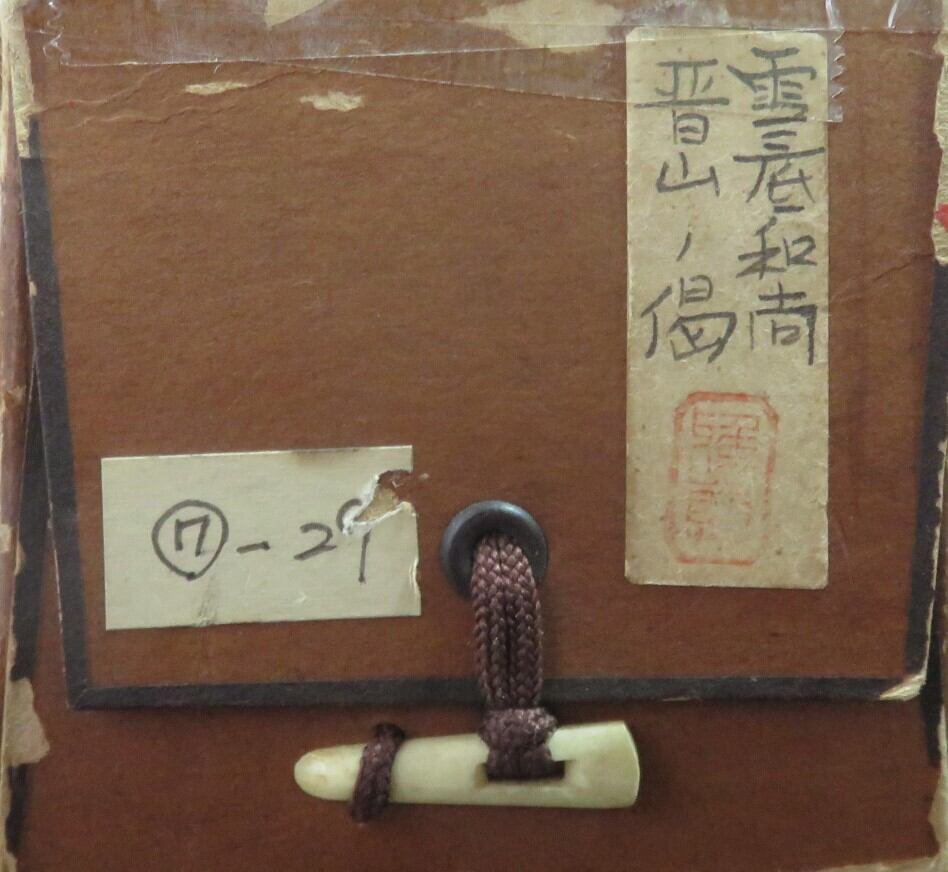 雪底和尚
晋山ノ偈
⑦-29